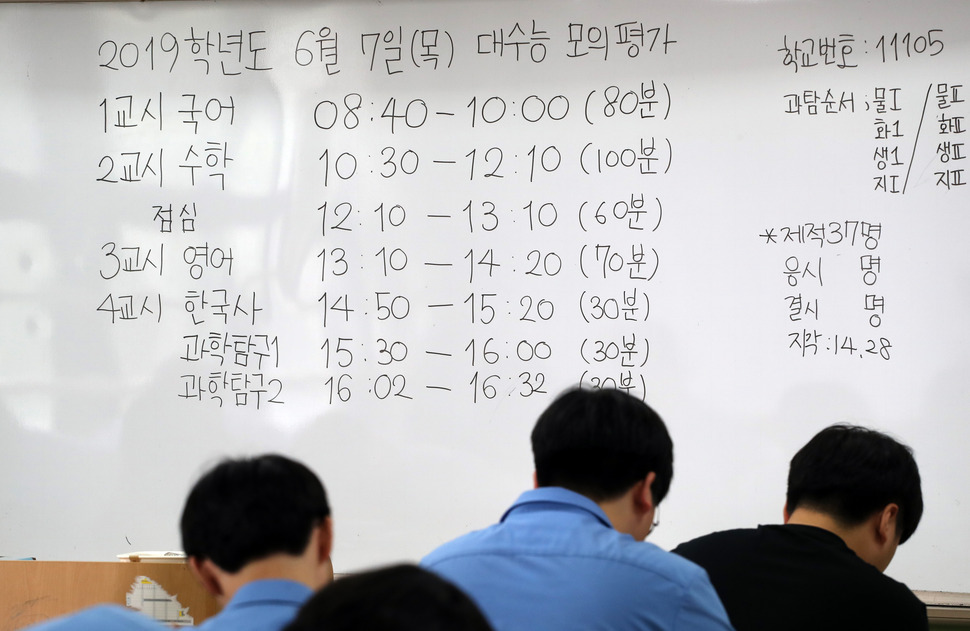 2019학년도 6월 7일(목) 대수능 모의평가
1교시 국어 08:40 - 10:00 (80분)
2교시 수학 10:30 - 12:10 (100분)
점심 12:10 - 13:10 (60분)
3교시 영어 13:10 - 14:20 (70분)
4교시 한국사 14:50 - 15:20 (30분)
과학탐구1 15:30 - 16:00 (30분)
과학탐구2 16:02 - 16:32 (30분)
학교번호 : 11105
과탐순서 ; 물I / 물II
화1 화II
생1 생II
지I 지II
*제적37명
응시 명
결시 명
지각 : 14.28